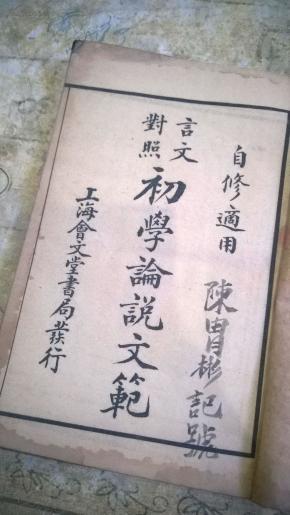 自修適用
陳胄彬記號
言文
對照
初學論說文範
上海會文堂書局發行